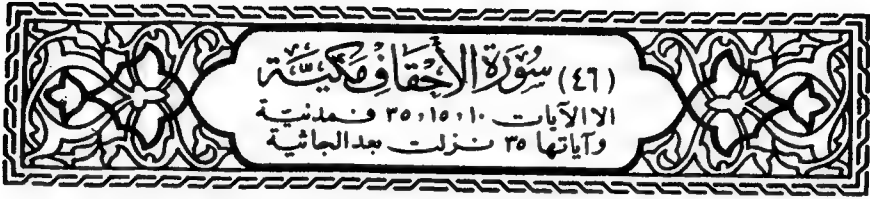 (٤٦) سُورَة الأَحْقَافِ مَكيَّة
الا الآيات ١٠ ، ١٥ ، ٣٥ فمدنيّة
وآياتها ٣٥ نزلت بعد الجاثية